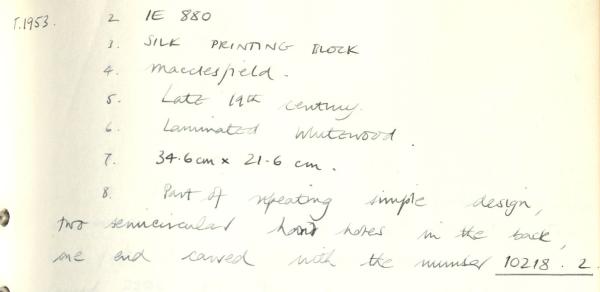 T.1953. 2 IE 880
3. SILK PRINTING BLOCK
4. Macclesfield.
5. Late 19th century.
6. Laminated Whitewood.
7. 34.6cm x 21.6 cm.
8. Part of repeating simple design,
two semicircular hand holes in the back,
one end carved with the number 10218.2